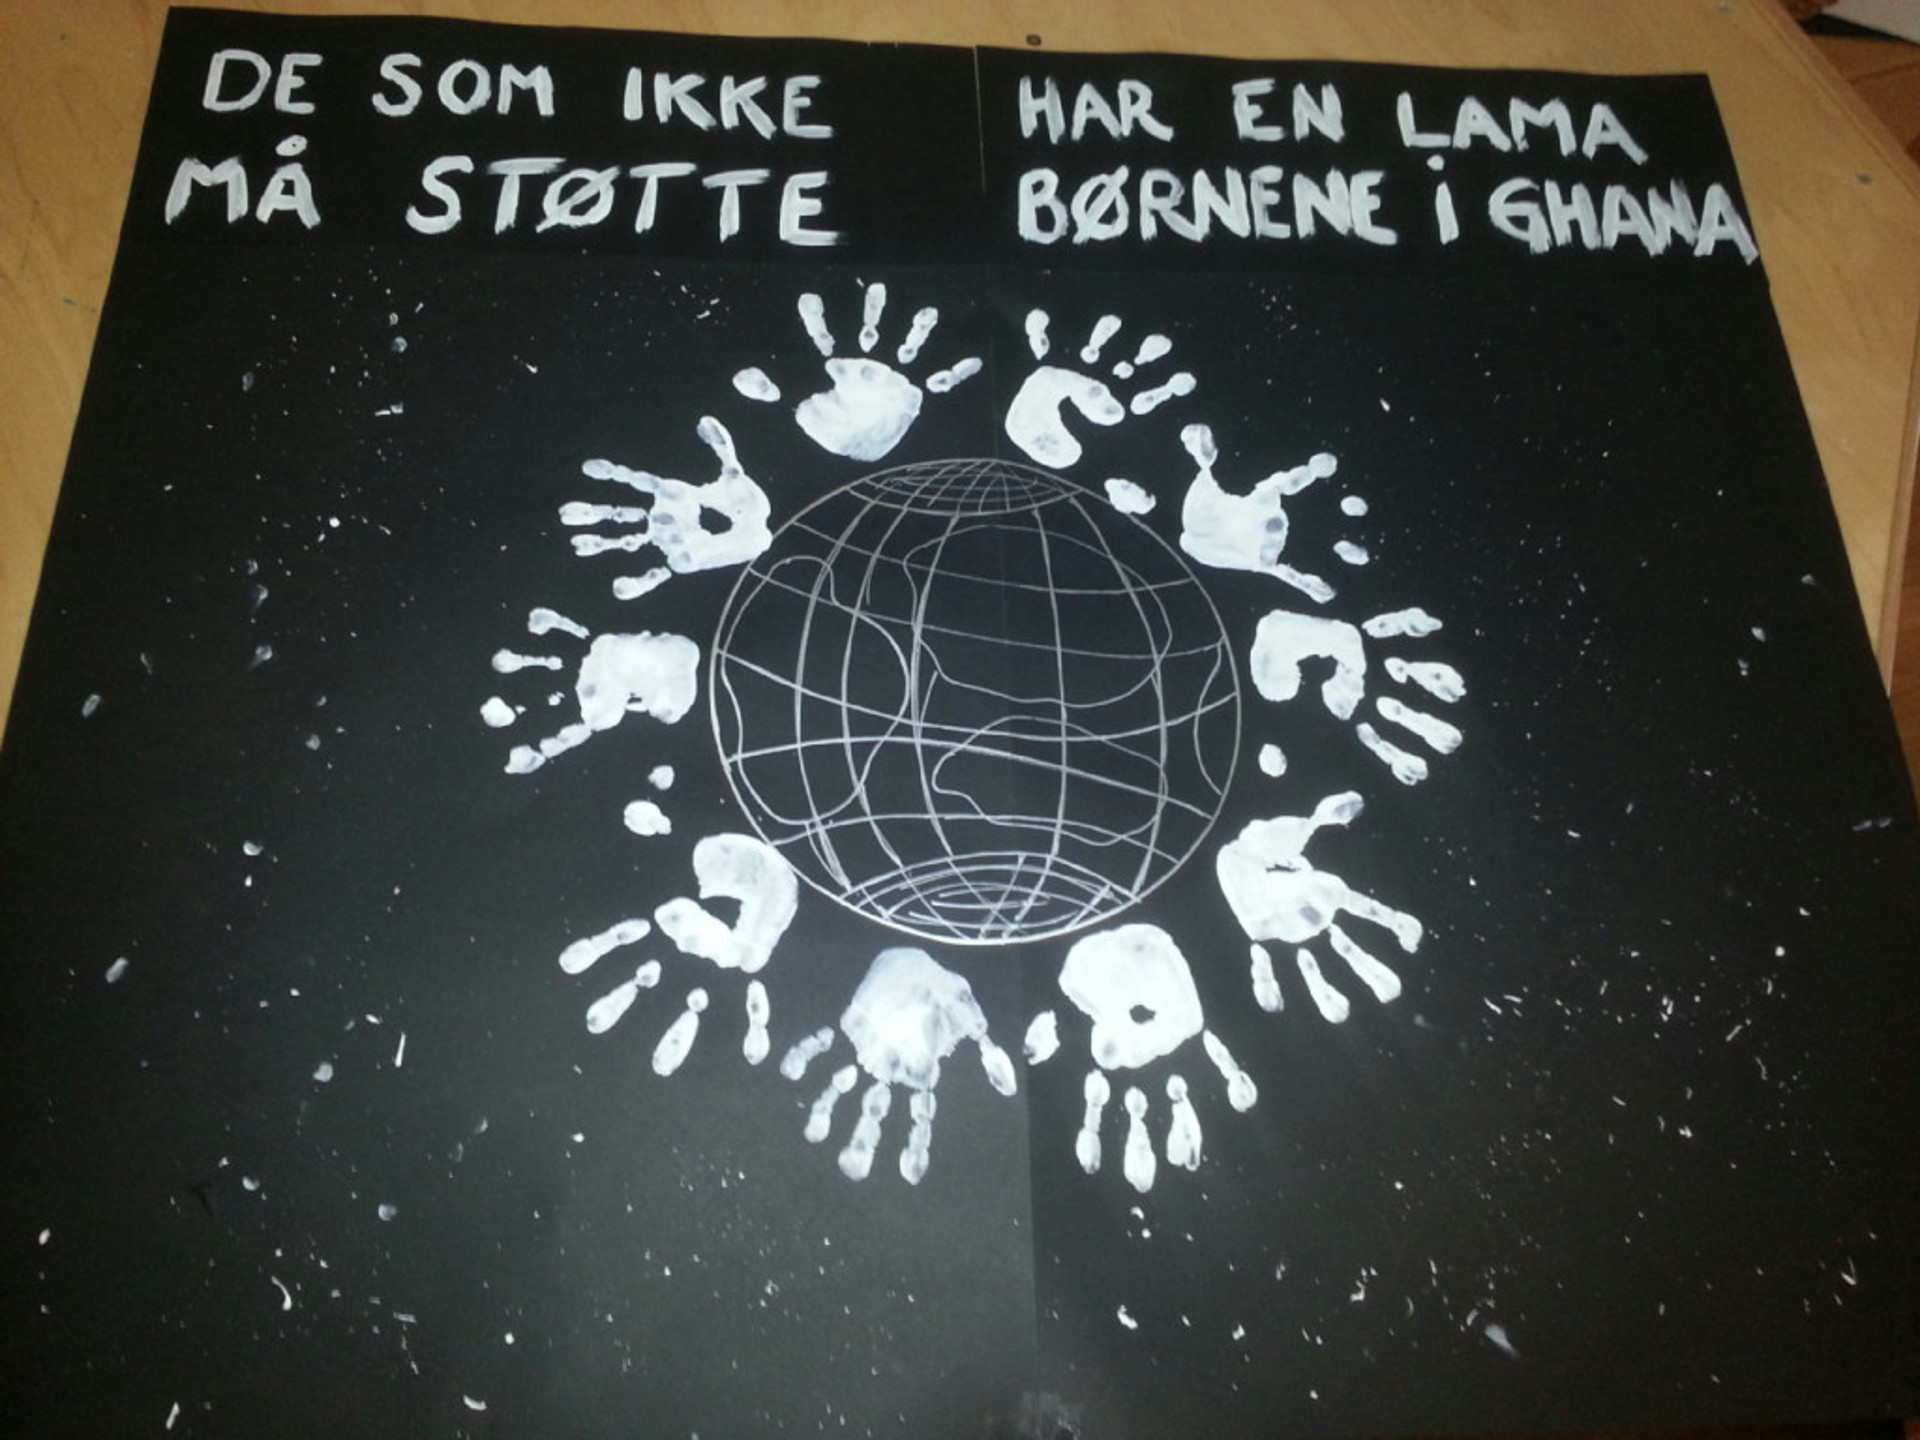 DE SOM IKKE HAR EN LAMA
MÅ STØTTE BØRNENE i GHANA